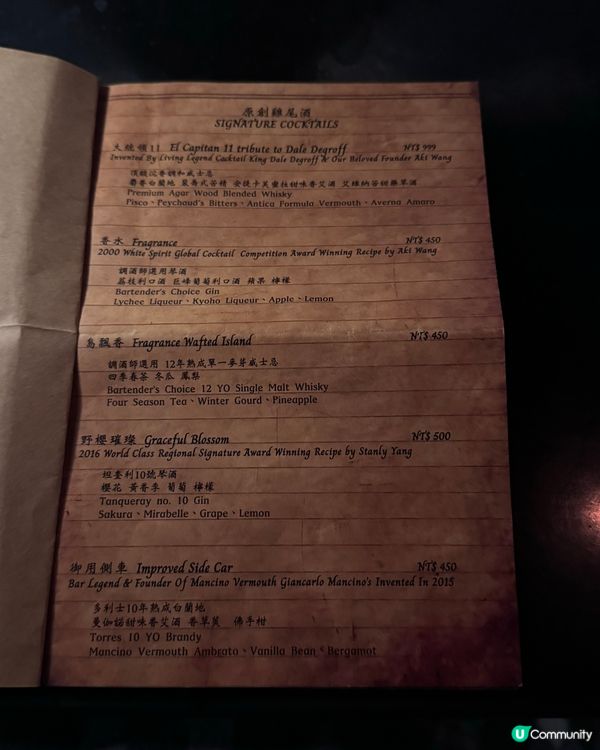 原創雞尾酒
SIGNATURE COCKTAILS
大統領11 El Capitan 11 tribute to Dale Degroff NT$ 999
Invented By Living Legend Cocktail King Dale Degroff & Our Beloved Founder Aki Wang
頂級沉香調和威士忌
麝香白蘭地 裴喬式苦精 安提卡芙蜜拉甜味香艾酒 艾維納苦甜藥草酒
Premium Agar Wood Blended Whisky
Pisco、Peychaud's Bitters、Antica Formula Vermouth、Averna Amaro
香水 Fragrance NT$ 450
2000 White Spirit Global Cocktail Competition Award Winning Recipe by Aki Wang
調酒師選用琴酒
荔枝利口酒 巨峰葡萄利口酒 蘋果 檸檬
Bartender's Choice Gin
Lychee Liqueur、Kyoho Liqueur、Apple、Lemon
島飄香 Fragrance Wafted Island NT$ 450
調酒師選用 12年熟成單一麥芽威士忌
四季春茶 冬瓜 鳳梨
Bartender's Choice 12 YO Single Malt Whisky
Four Season Tea、Winter Gourd、Pineapple
野櫻璀璨 Graceful Blossom NT$ 500
2016 World Class Regional Signature Award Winning Recipe by Stanly Yang
坦奎利10號琴酒
櫻花 黃香李 葡萄 檸檬
Tanqueray no. 10 Gin
Sakura、Mirabelle、Grape、Lemon
御用側車 Improved Side Car NT$ 450
Bar Legend & Founder Of Mancino Vermouth Giancarlo Mancino's Invented In 2015
多利士10年熟成白蘭地
曼伽諾甜味香艾酒 香草莢 佛手柑
Torres 10 YO Brandy
Mancino Vermouth Ambrato、Vanilla Bean、Bergamot
U Community